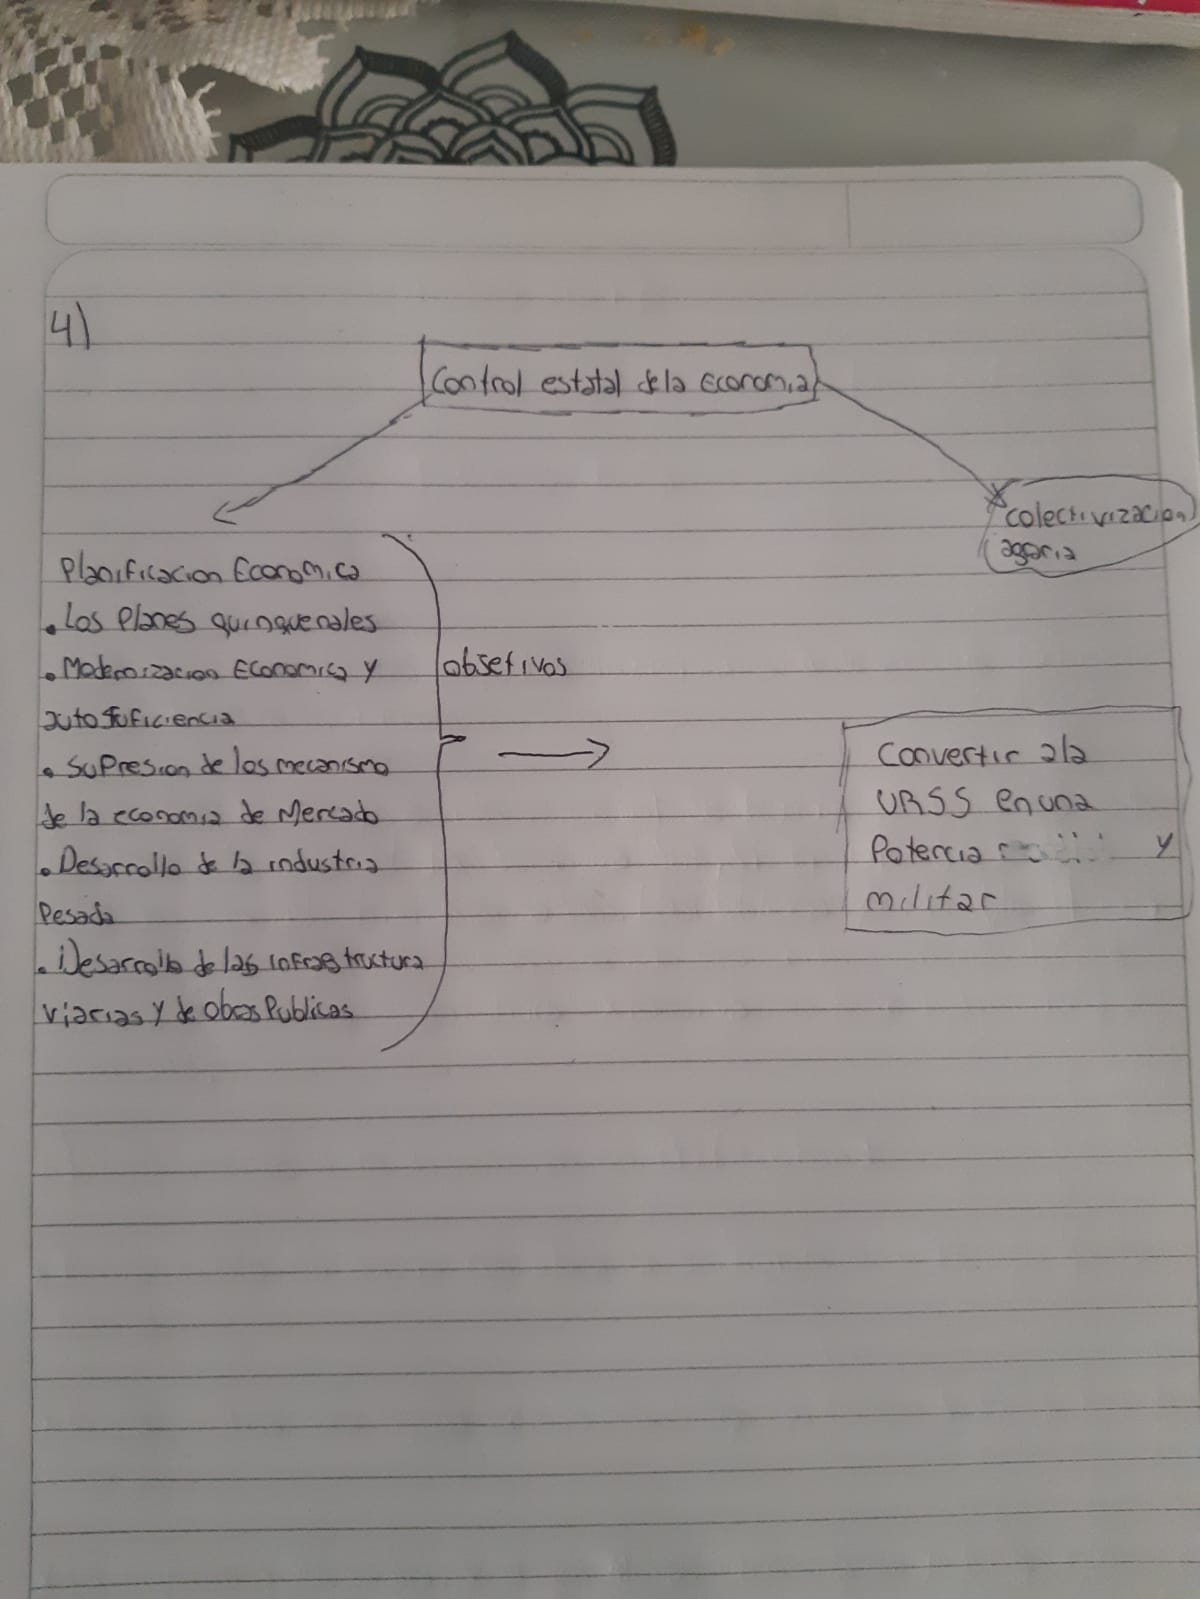 4)
Control estatal de la Economia
colectivizacion
agaria
Planificacion Economica
. Los Planes quinquenales
. Modernizacion Economica y
auto suficiencia
. Supresion de los mecanismo
de la economia de Mercado
. Desarrollo de la industria
Pesada
. Desarrollo de las infraestructura
viarias y de obras Publicas
objetivos
Convertir ala
URSS en una
Potencia y
militar